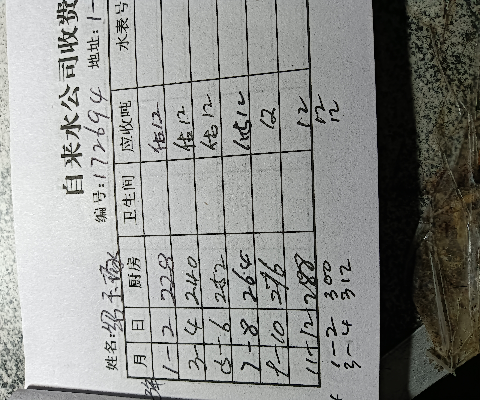 自来水公司收费
编号:172694 地址:1-
姓名:
月 日 厨房 卫生间 应收吨 水表号
1-2 228 估12
3-4 240 估12
5-6 252 估12
7-8 264 估12
9-10 276 12
11-12 288 12
1-2 300 12
3-4 312 12